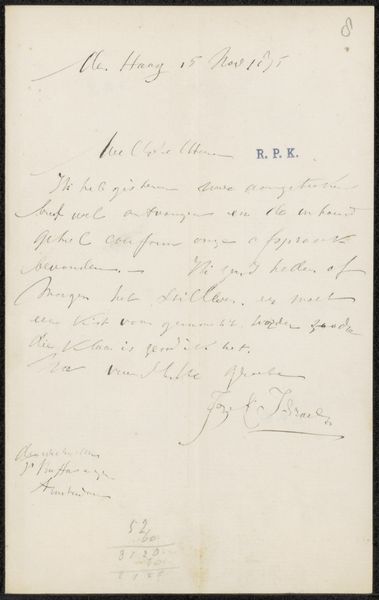 8
Den Haag 15 Nov 1875
R. P. K.
Ik heb gisteren uwe aangetekende
brief wel ontvangen en de inhoud
geheel conform onze afspraak
bevonden. — Ik zend heden of
morgen het stilleven er moet
een kist voor gemaakt worden zoodra
die klaar is zend ik het.
Na vriendelijke groete
Jozef Israels
Amsterdam
52
60
3120